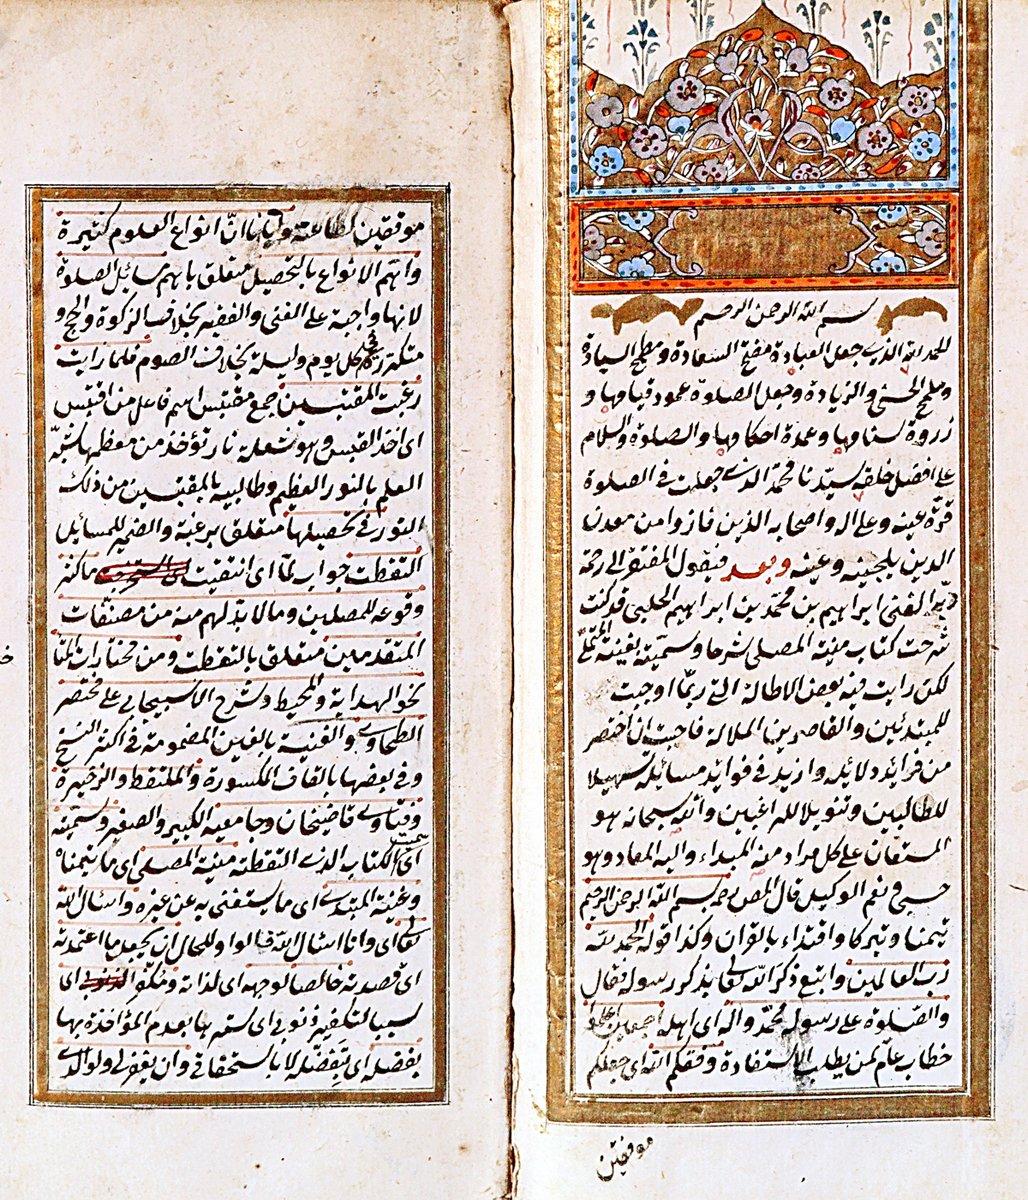 بسم الله الرحمن الرحيم
الحمد لله الذي جعل العبادة مفتح السعادة ومطمح السيادة
وملمح الحسنى والزيادة وجعل الصلوة عمود قيامها و
زروة سنامها وعمدة احكامها والصلوة والسلام
على افضل خلقه سيدنا محمد الذي جعلت في الصلوة
قرة عينه وعلى اله واصحابه الذين فازوا من معدن
الدين بلجينه وعينه وبعد فيقول المفتقر الى رحمة
ربه الغني ابراهيم بن محمد بن ابراهيم الحلبي قد كنت
شرحت كتاب منية المصلي شرحا وسميته بغنية المتملي
لكن رايت فيه بعض الاطالة التي ربما اوجبت
للمبتدئين والقاصرين الملالة فاحببت ان اختصر
من فرائد دلائله وازيد في فوائد مسائله تسهيلا
للطالبين وتنويلا للراغبين والله سبحانه هو
المستعان على كل مراد منه المبداء واليه المعاد وهو
حسبي ونعم الوكيل قال المص رحمه بسم الله الرحمن الرحيم
تيمنا وتبركا واقتداء بالقران وكذا قوله الحمد لله
رب العالمين واتبع ذكر الله تعالى بذكر رسوله فقال
والصلوة على رسوله محمد واله اي اهله اجمعين اعلموا
خطاب عام لمن يطلب الاستفادة وفقكم الله اي جعلكم
موفقين
موفقين لطاعته وايانا ان انواع العلوم كثيرة
واهم الانواع بالتحصيل متعلق باهم مسائل الصلوة
لانها واجبة على الغني والفقير بخلاف الزكوة والحج و
متكررة في كل يوم وليلة بخلاف الصوم فلما رايت
رغبت المقتبسين جمع مقتبس اسم فاعل من اقتبس
اي اخذ القبس وهو شعلة نار تؤخذ من معظمها شبه
العلم بالنور العظيم وطالبيه بالمقتبسين من ذلك
النور في تحصيلها متعلق برغبة والضمير للمسائل
التقطت جواب لما اي انتقيت ما كثر
وقوعه للمصلين وما لا بد لهم منه من مصنفات
المتقدمين متعلق بالتقطت ومن مختارات المتا
نحو الهداية والمحيط وشرح الاسبيجابي على مختصر
الطحاوي والغنية بالغين المضمومة في اكثر النسخ
وفي بعضها بالقاف المكسورة والملتقط والزخيرة
وفتاوى قاضيخان وجامعيه الكبير والصغير وسميته
اي الكتاب الذي التقطته منية المصلي اي ما يتمناه
وغنية المبتدي اي ما يستغنى به عن غيره واسئال الله
تعالى اي وانا اسئال الله فالواو للحال ان يجعل ما اعتمدته
اي قصدته خالصا لوجهه اي لذاته ومكفرا اي
سببا لتكفير ذنوبي اي سترها بعدم المؤاخذة بها
بفضله اي بتفضله لا باستحقاقي وان يغفر لي ولوالدي